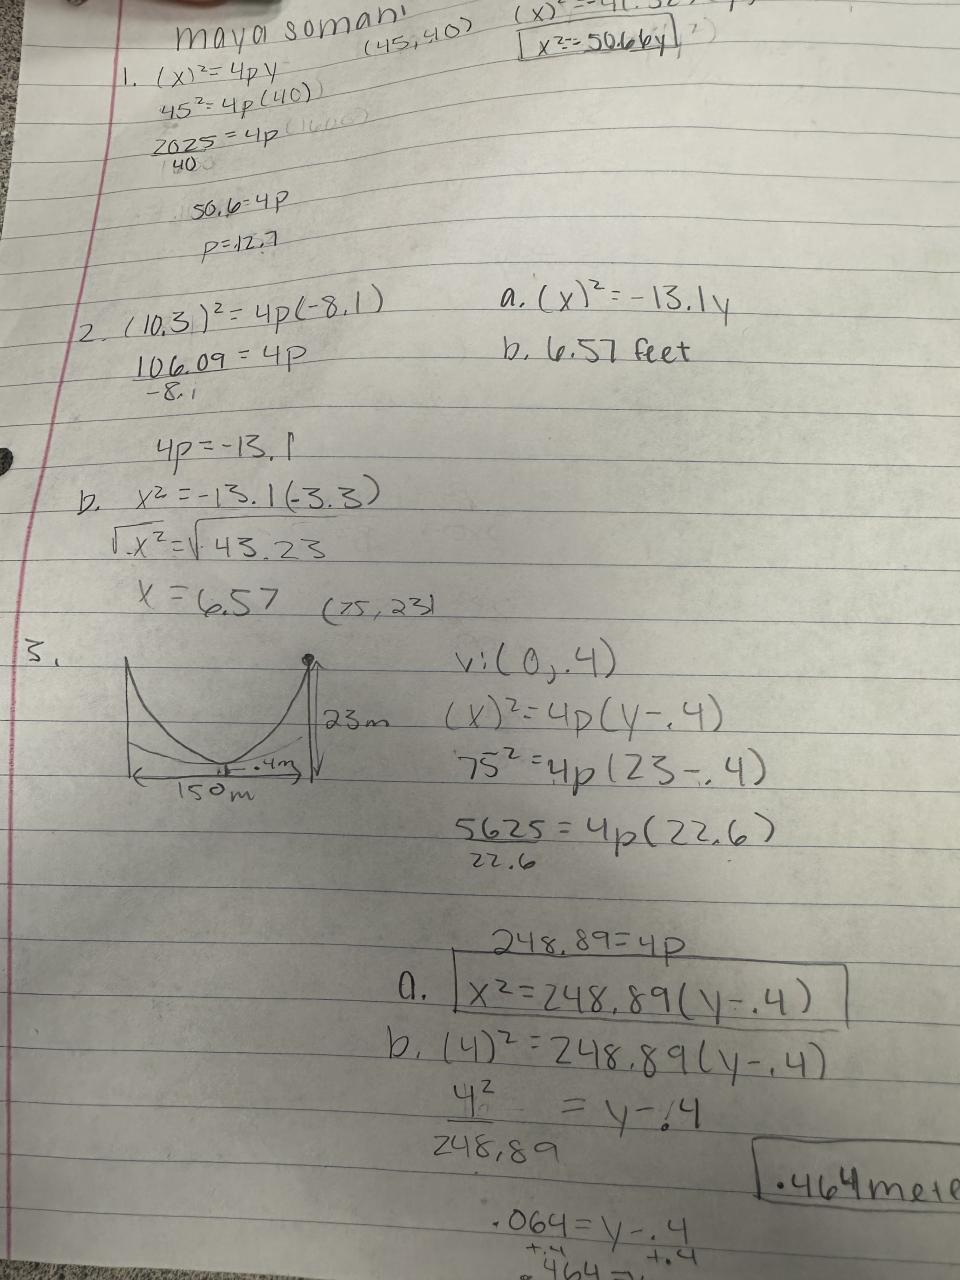 maya somani
(45,40)
x²=50.6by
1. (x)²=4py
45²=4p(40)
2025=4p
40
50.6=4p
p=12.7
2. (10.3)²=4p(-8.1)
106.09=4p
-8.1
4p=-13.1
a. (x)²=-13.1y
b. 6.57 feet
b. x²=-13.1(-3.3)
√x²=√43.23
x=6.57
(75,23)
3.
23m
.4m
150m
v:(0,.4)
(x)²=4p(y-.4)
75²=4p(23-.4)
5625=4p(22.6)
22.6
248.89=4p
a. x²=248.89(y-.4)
b. (4)²=248.89(y-.4)
4² =y-.4
248.89
.464 mete
.064=y-.4
+.4 +.4
.464=